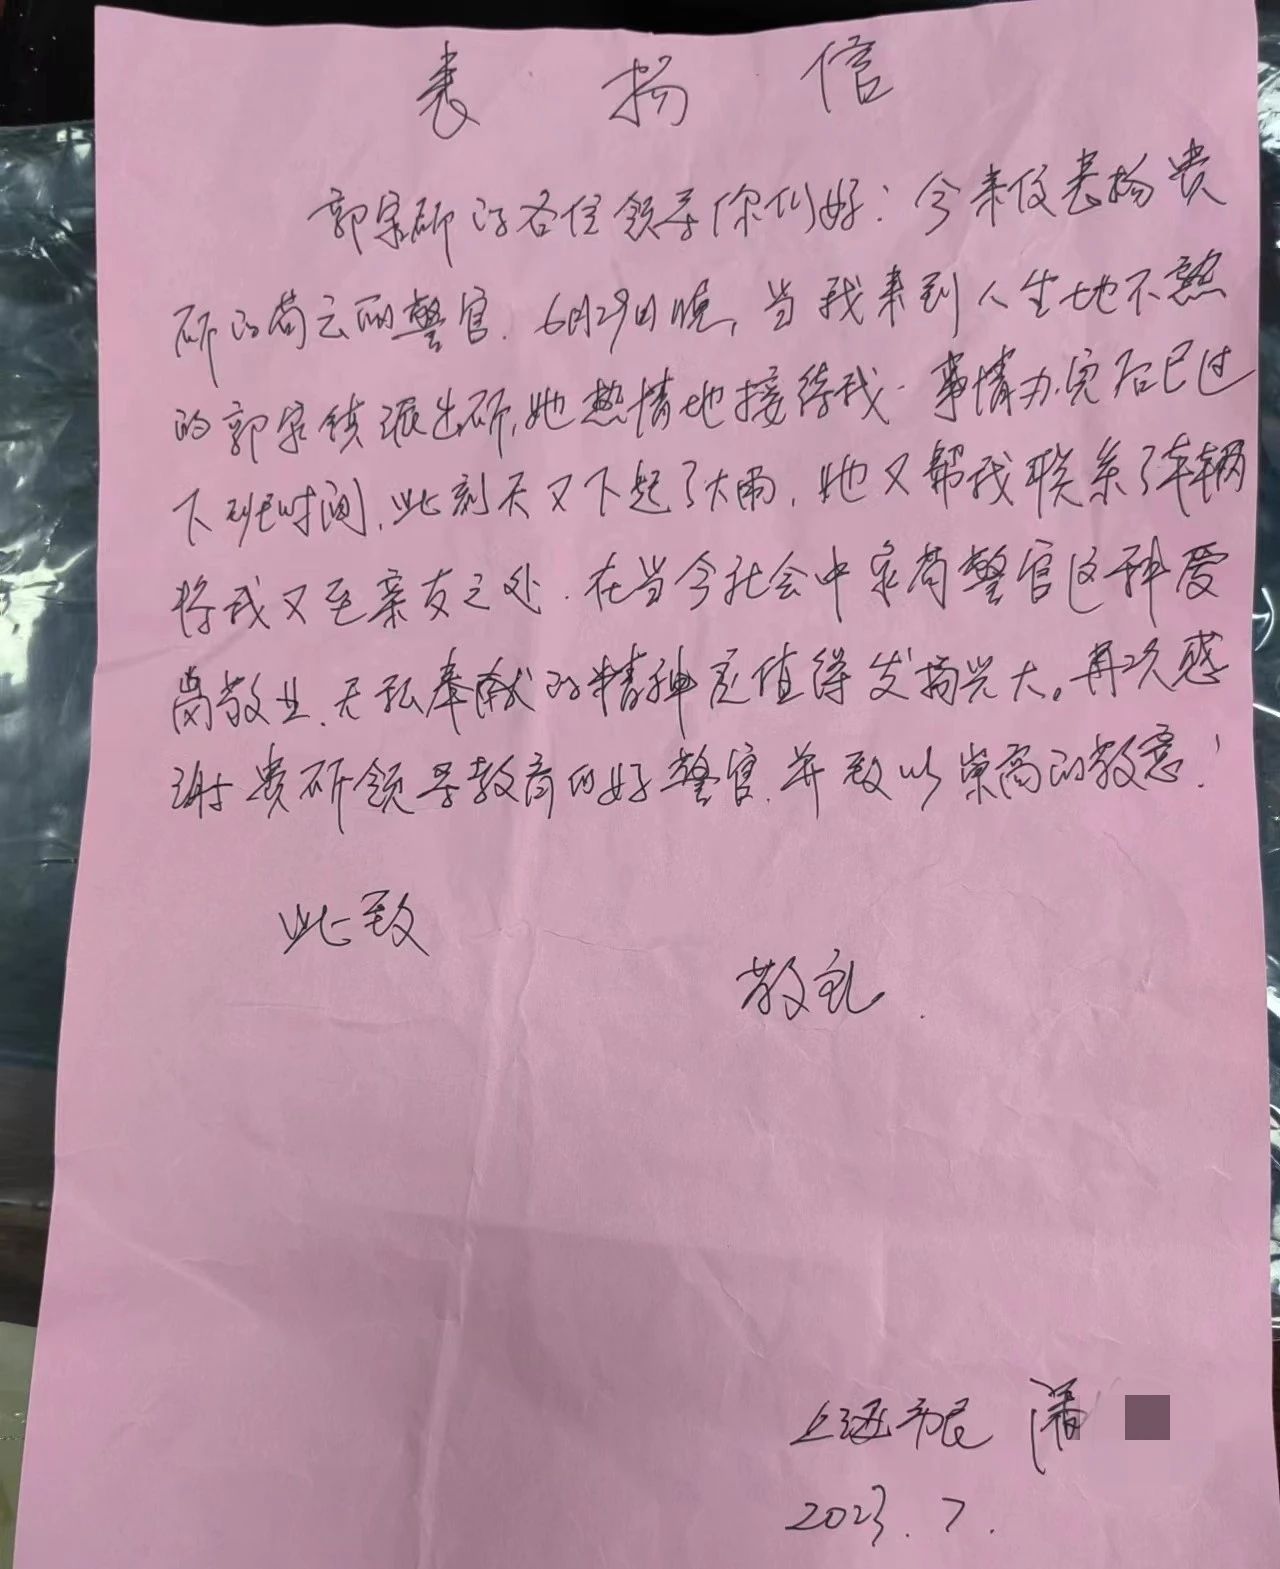 表扬信
郭家所的各位领导你们好：今来信表扬贵
所的苟云丽警官.6月29日晚,当我来到人生地不熟
的郭家镇派出所,她热情地接待我.事情办完后已过
下班时间,此刻天又下起了大雨,她又帮我联系了车辆
将我又至亲友之处.在当今社会中象苟警官这种爱
岗敬业、无私奉献的精神应值得发扬光大。再次感
谢贵所领导教育的好警官.并致以崇高的敬意!
此致
敬礼.
上海市民 潘
2023.7.